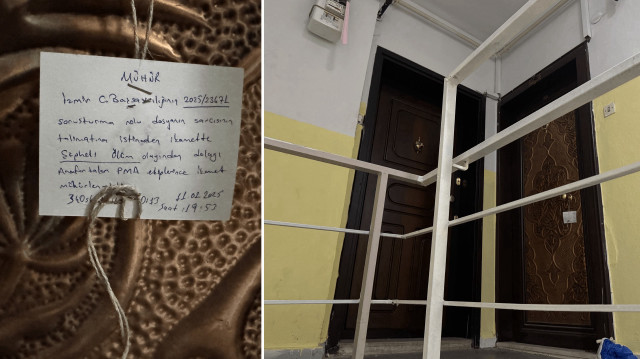 MÜHÜR
İzmir C. Başsavcılığının 2025/23671
soruşturma nolu dosyanın savcısının
talimatına istinaden ikamette
Şüpheli Ölüm olayından dolayı
PMA ekiplerince ikamet
mühürlenmiştir
11.02.2025
Saat: 19:53